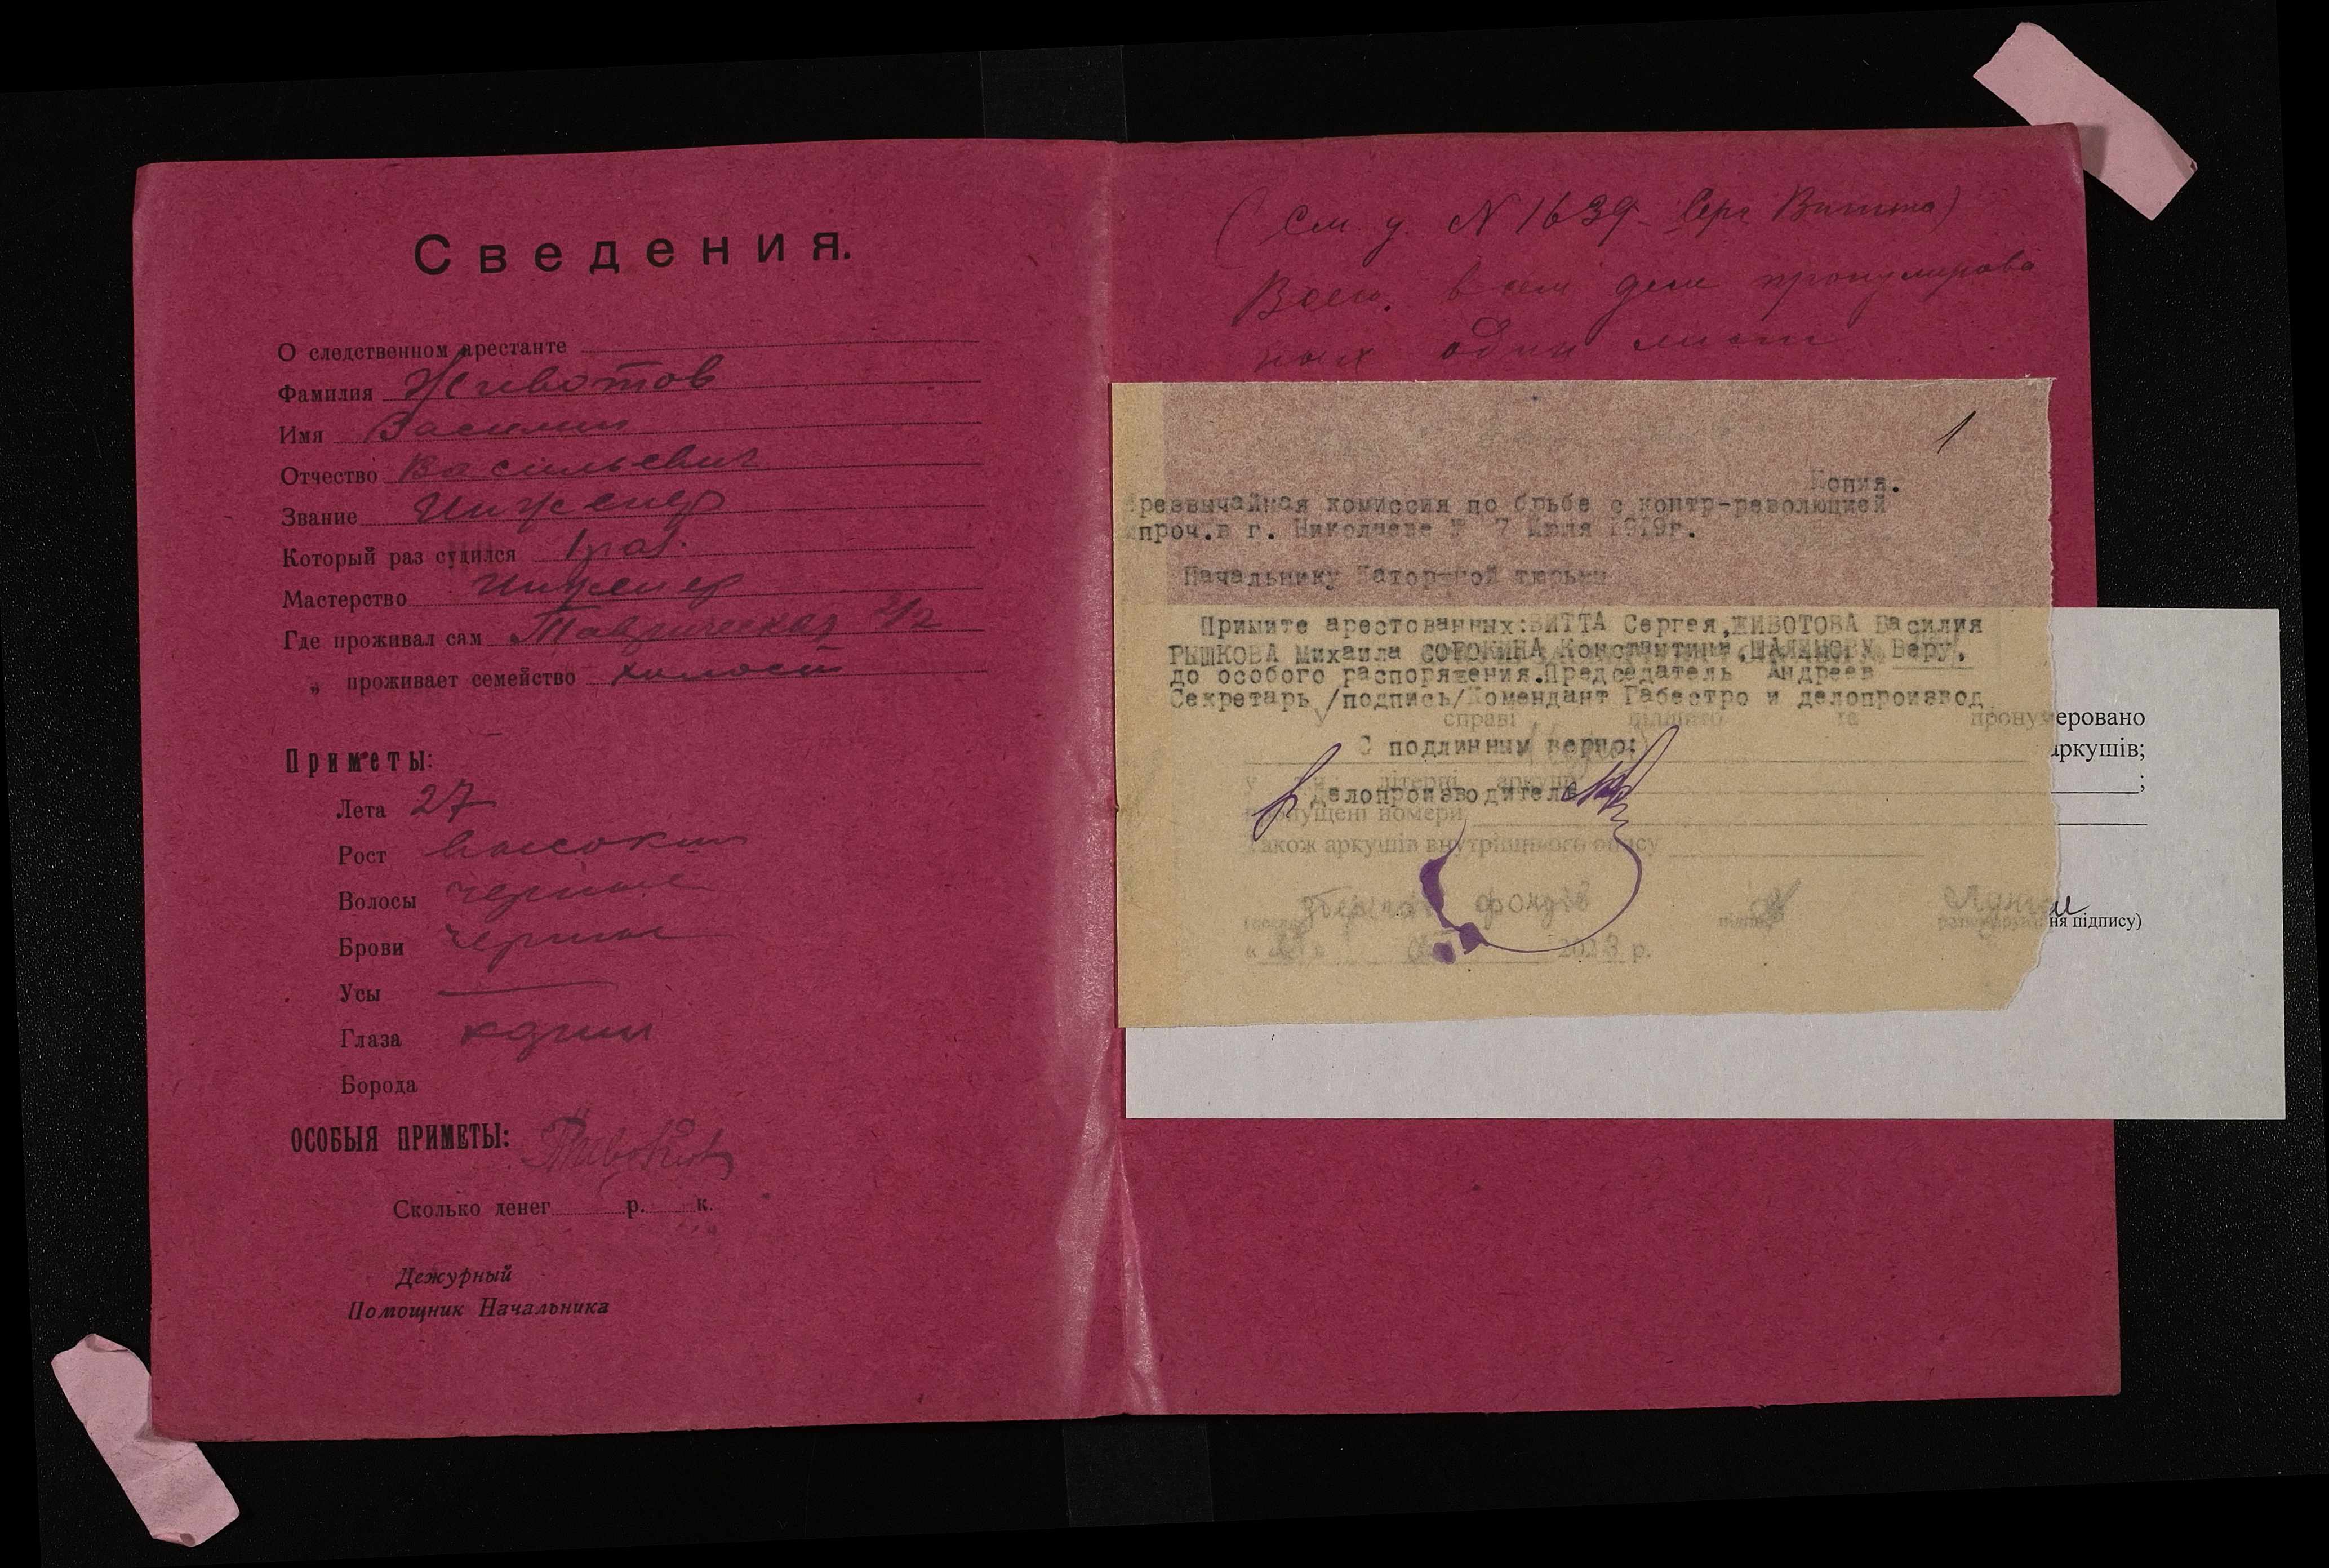 Сведения.
О следственном арестанте
Фамилия Животов
Имя Василий
Отчество Васильевич
Звание Инженер
Который раз судился 1 раз.
Мастерство Инженер
Где проживал сам Таврическая
„ проживает семейство холост
Приметы:
Лета 27
Рост высокий
Волосы черные
Брови черные
Усы —
Глаза карии
Борода
ОСОБЫЯ ПРИМЕТЫ:
Сколько денег р. к.
Дежурный
Помощник Начальника
(См д. N 1639 Серг Витта)
Всего в сем деле пронумерова
ных один лист
1
Копия.
Чрезвычайная комиссия по брьбе с контр-революцией
проч.в г. Николаеве № 7 Июля 1919г.
Начальнику Каторжной тюрьмы
Примите арестованных:ВИТТА Сергея,ЖИВОТОВА Василия
РЫШКОВА Михаила СОРОКИНА Константина,ШАЛИМОВУ Веру,
до особого распоряжения.Председатель Андреев
Секретарь /подпись/Комендант Габестро и делопроизвод
С подлинным верно:
Делопроизводитель
У справі підшито та пронумеровано
аркушів;
у т.ч.: літерні аркуші ;
пропущені номери
також аркушів внутрішнього опису
фондів
підпис
ня підпису)
2023 р.